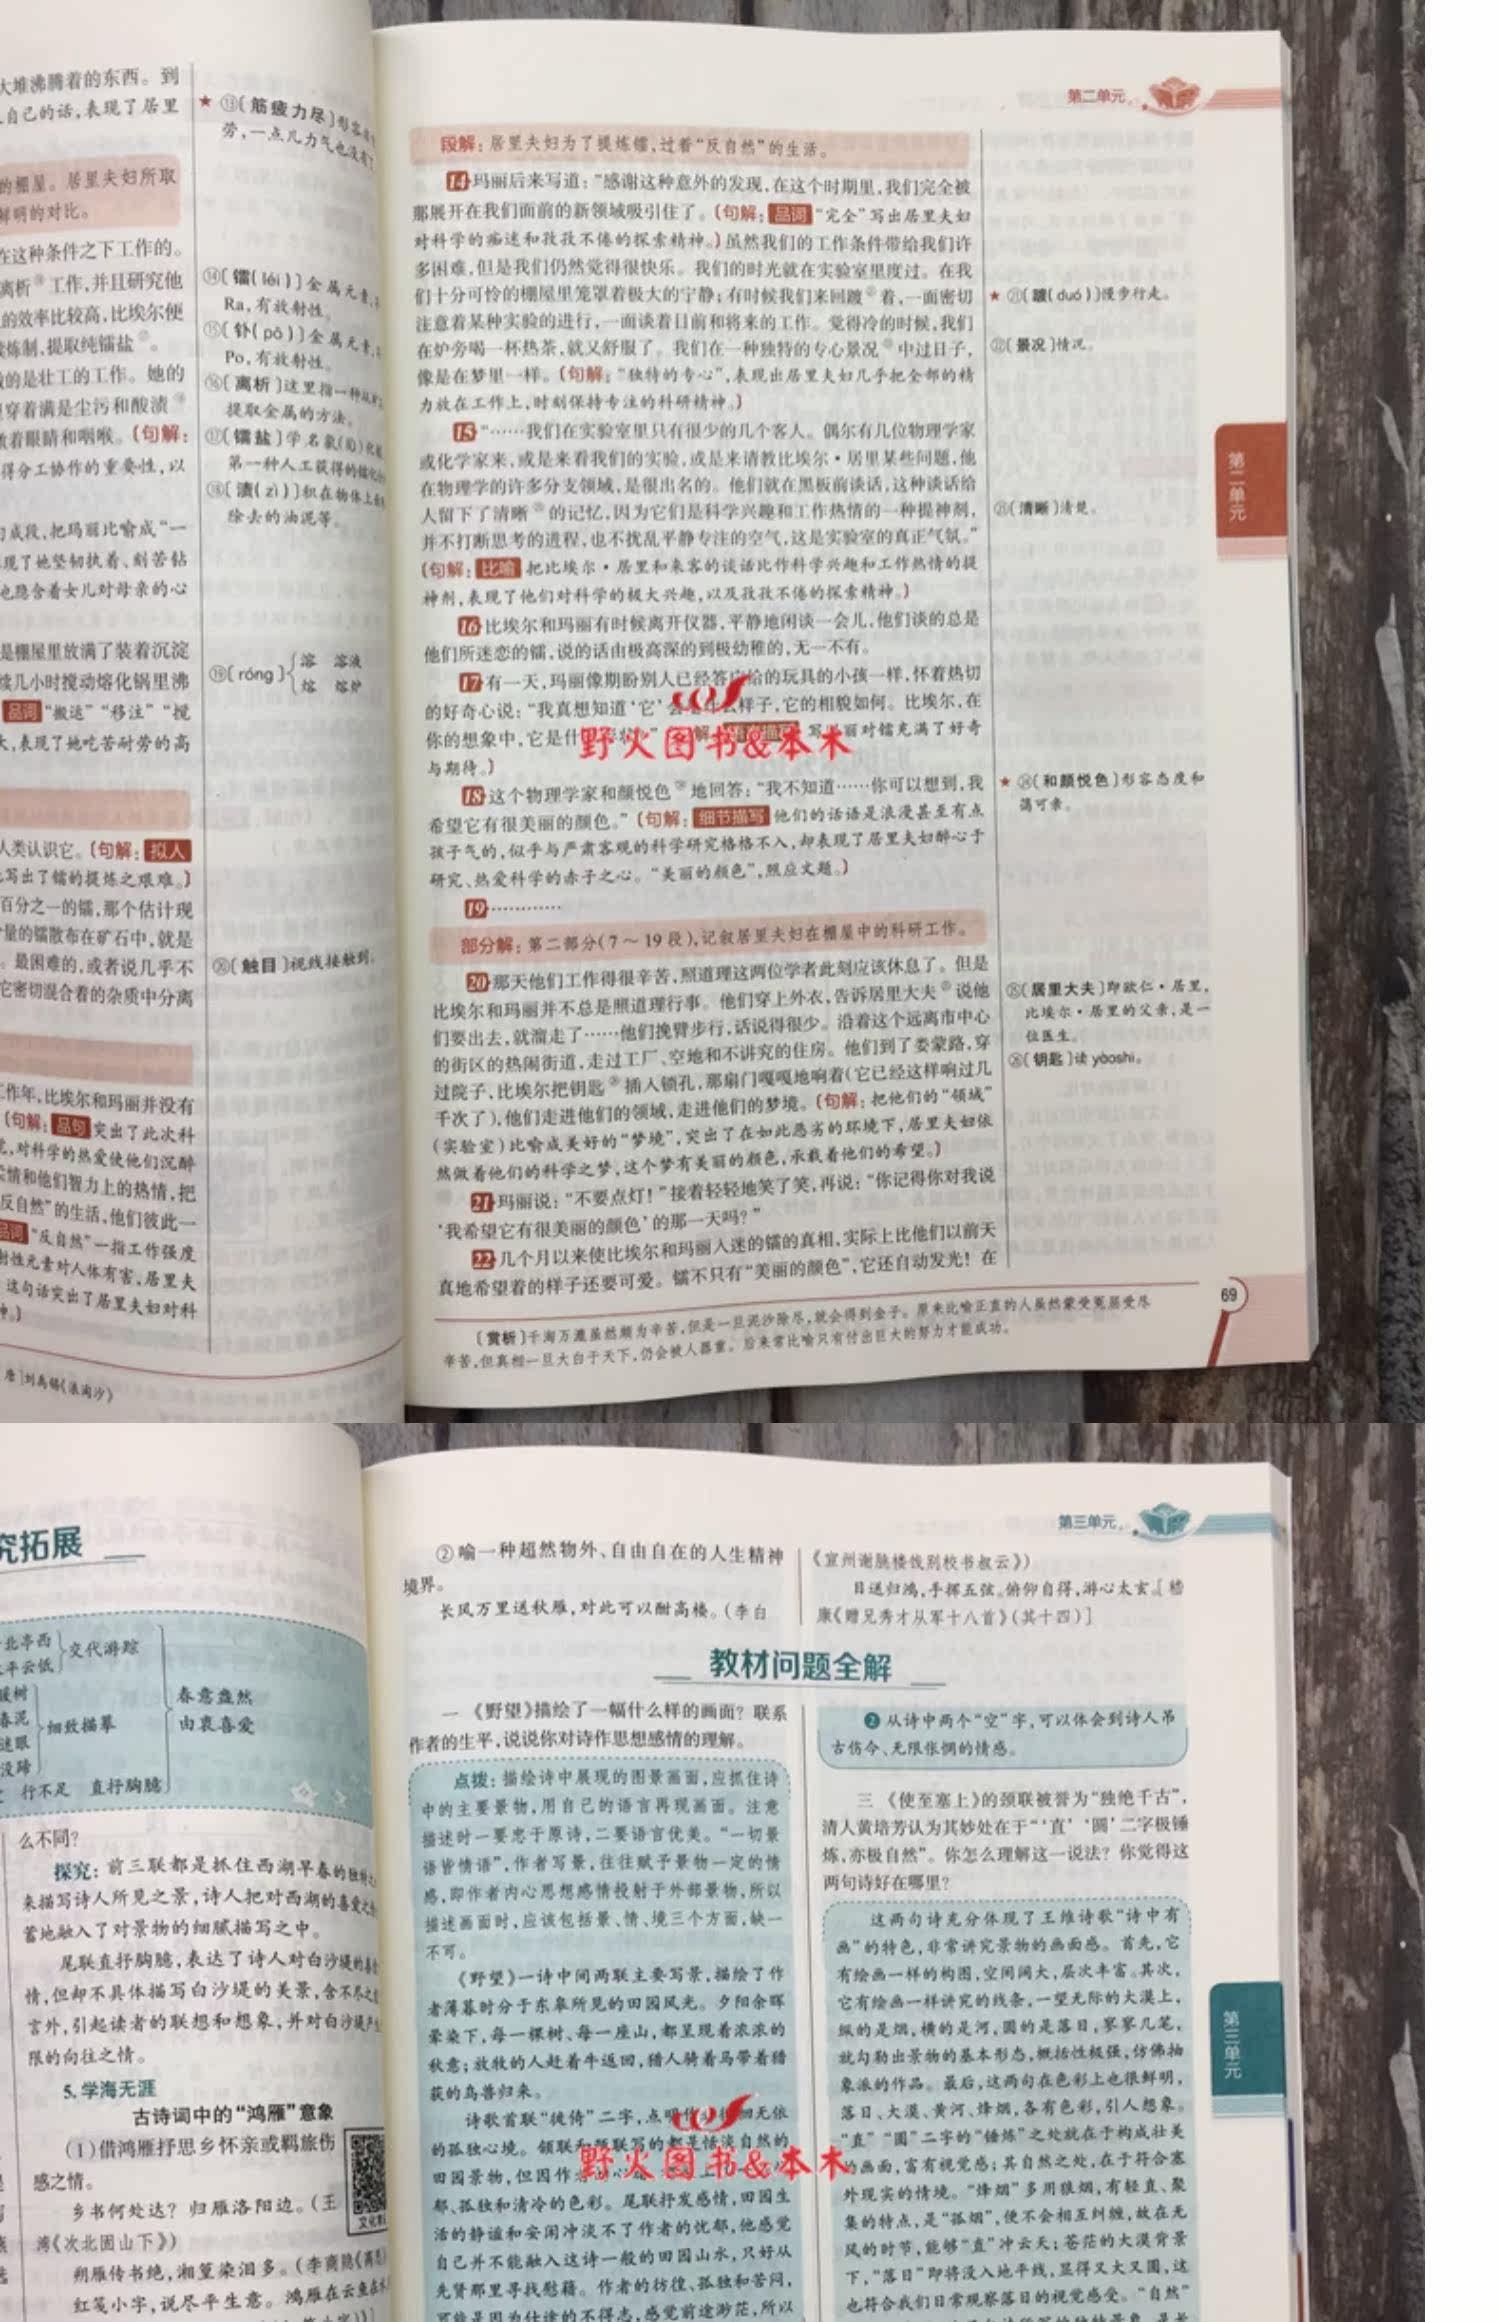 大堆沸腾着的东西。到
自己的话,表现了居里
的棚屋。居里夫妇所取
鲜明的对比。
在这种条件之下工作的。
离析⑯工作,并且研究他
的效率比较高,比埃尔便
炼制,提取纯镭盐
的是壮工的工作。她的
穿着满是尘污和酸渍
着眼睛和咽喉。(句解:
得分工协作的重要性,以
成段,把玛丽比喻成“一
现了她坚韧执着、刻苦钻
也隐含着女儿对母亲的心
是棚屋里放满了装着沉淀
续几小时搅动熔化锅里沸
品词 “搬运”“移注”“搅
大,表现了她吃苦耐劳的高
人类认识它。(句解: 拟人
写出了镭的提炼之艰难。)
百分之一的镭,那个估计现
量的镭散布在矿石中,就是
。最困难的,或者说几乎不
它密切混合着的杂质中分离
工作年,比埃尔和玛丽并没有
(句解: 品句 突出了此次科
,对科学的热爱使他们沉醉
柔情和他们智力上的热情,把
反自然”的生活,他们彼此一
品词 “反自然”一指工作强度
射性元素对人体有害,居里夫
这句话突出了居里夫妇对科
神。)
唐]刘禹锡《浪淘沙》
★ ⑬〔筋疲力尽〕形容
劳,一点儿力气也没有了
⑭〔镭(léi)〕金属元素,
Ra,有放射性。
⑮〔钋(pō)〕金属元素,
Po,有放射性。
⑯〔离析〕这里指一种从
提取金属的方法。
⑰〔镭盐〕学名氯
第一种人工获得的镭化
⑱〔渍(zì)〕积在物体上
除去的油泥等。
⑲〔róng〕 溶 溶液
熔 熔炉
⑳〔触目〕视线接触到。
第二单元
段解: 居里夫妇为了提炼镭,过着“反自然”的生活。
14 玛丽后来写道:“感谢这种意外的发现,在这个时期里,我们完全被
那展开在我们面前的新领域吸引住了。(句解: 品词 “完全”写出居里夫妇
对科学的痴迷和孜孜不倦的探索精神。)虽然我们的工作条件带给我们许
多困难,但是我们仍然觉得很快乐。我们的时光就在实验室里度过。在我
们十分可怜的棚屋里笼罩着极大的宁静;有时候我们来回踱㉑着,一面密切
注意着某种实验的进行,一面谈着目前和将来的工作。觉得冷的时候,我们
在炉旁喝一杯热茶,就又舒服了。我们在一种独特的专心景况㉒中过日子,
像是在梦里一样。(句解: “独特的专心”,表现出居里夫妇几乎把全部的精
力放在工作上,时刻保持专注的科研精神。)
15 “……我们在实验室里只有很少的几个客人。偶尔有几位物理学家
或化学家来,或是来看我们的实验,或是来请教比埃尔·居里某些问题,他
在物理学的许多分支领域,是很出名的。他们就在黑板前谈话,这种谈话给
人留下了清晰㉓的记忆,因为它们是科学兴趣和工作热情的一种提神剂,
并不打断思考的进程,也不扰乱平静专注的空气,这是实验室的真正气氛。”
(句解: 比喻 把比埃尔·居里和来客的谈话比作科学兴趣和工作热情的提
神剂,表现了他们对科学的极大兴趣,以及孜孜不倦的探索精神。)
16 比埃尔和玛丽有时候离开仪器,平静地闲谈一会儿,他们谈的总是
他们所迷恋的镭,说的话由极高深的到极幼稚的,无一不有。
17 有一天,玛丽像期盼别人已经答应给的玩具的小孩一样,怀着热切
的好奇心说:“我真想知道‘它’会是什么样子,它的相貌如何。比埃尔,在
你的想象中,它是什 写 丽对镭充满了好奇
与期待。)
18 这个物理学家和颜悦色㉔地回答:“我不知道……你可以想到,我
希望它有很美丽的颜色。”(句解: 细节描写 他们的话语是浪漫甚至有点
孩子气的,似乎与严肃客观的科学研究格格不入,却表现了居里夫妇醉心于
研究、热爱科学的赤子之心。“美丽的颜色”,照应文题。)
19 …………
部分解: 第二部分(7～19段),记叙居里夫妇在棚屋中的科研工作。
20 那天他们工作得很辛苦,照道理这两位学者此刻应该休息了。但是
比埃尔和玛丽并不总是照道理行事。他们穿上外衣,告诉居里大夫㉕说他
们要出去,就溜走了……他们挽臂步行,话说得很少。沿着这个远离市中心
的街区的热闹街道,走过工厂、空地和不讲究的住房。他们到了娄蒙路,穿
过院子,比埃尔把钥匙㉖插入锁孔,那扇门嘎嘎地响着(它已经这样响过几
千次了),他们走进他们的领域,走进他们的梦境。(句解: 把他们的“领域”
(实验室)比喻成美好的“梦境”,突出了在如此恶劣的环境下,居里夫妇依
然做着他们的科学之梦,这个梦有美丽的颜色,承载着他们的希望。)
21 玛丽说:“不要点灯!”接着轻轻地笑了笑,再说:“你记得你对我说
‘我希望它有很美丽的颜色’的那一天吗?”
22 几个月以来使比埃尔和玛丽入迷的镭的真相,实际上比他们以前天
真地希望着的样子还要可爱。镭不只有“美丽的颜色”,它还自动发光!在
〔赏析〕千淘万漉虽然颇为辛苦,但是一旦泥沙除尽,就会得到金子。原来比喻正直的人虽然蒙受冤屈受尽
辛苦,但真相一旦大白于天下,仍会被人器重。后来常比喻只有付出巨大的努力才能成功。
★ ㉑〔踱(duó)〕慢步行走。
㉒〔景况〕情况。
㉓〔清晰〕清楚。
★ ㉔〔和颜悦色〕形容态度和
蔼可亲。
㉕〔居里大夫〕即欧仁·居里,
比埃尔·居里的父亲,是一
位医生。
㉖〔钥匙〕读 yàoshi。
第二单元
69
野火图书&本木
究拓展
北亭西
平云低
交代游踪
暖树
春泥
细致描摹
迷眼
没蹄
行不足 直抒胸臆
春意盎然
由衷喜爱
么不同?
探究: 前三联都是抓住西湖早春的独特之
来描写诗人所见之景,诗人把对西湖的喜爱之
蓄地融入了对景物的细腻描写之中。
尾联直抒胸臆,表达了诗人对白沙堤的喜
情,但却不具体描写白沙堤的美景,含不尽之
言外,引起读者的联想和想象,并对白沙堤产生
限的向往之情。
5. 学海无涯
古诗词中的“鸿雁”意象
(1)借鸿雁抒思乡怀亲或羁旅伤
感之情。
乡书何处达? 归雁洛阳边。(王
湾《次北固山下》)
朔雁传书绝,湘篁染泪多。(李商隐《离思》
红笺小字,说尽平生意。鸿雁在云鱼在水
第三单元
②喻一种超然物外、自由自在的人生精神
境界。
长风万里送秋雁,对此可以酣高楼。(李白
《宣州谢朓楼饯别校书叔云》)
目送归鸿,手挥五弦。俯仰自得,游心太玄。[嵇
康《赠兄秀才从军十八首》(其十四)]
教材问题全解
一 《野望》描绘了一幅什么样的画面? 联系
作者的生平,说说你对诗作思想感情的理解。
点拨: 描绘诗中展现的图景画面,应抓住诗
中的主要景物,用自己的语言再现画面。注意
描述时一要忠于原诗,二要语言优美。“一切景
语皆情语”,作者写景,往往赋予景物一定的情
感,即作者内心思想感情投射于外部景物,所以
描述画面时,应该包括景、情、境三个方面,缺一
不可。
《野望》一诗中间两联主要写景,描绘了作
者薄暮时分于东皋所见的田园风光。夕阳余晖
晕染下,每一棵树、每一座山,都呈现着浓浓的
秋意;放牧的人赶着牛返回,猎人骑着马带着猎
获的鸟兽归来。
诗歌首联“徙倚”二字,点明作 徊无依
的孤独心境。颔联和颈联写的都是恬淡自然的
田园景物,但因作
郁、孤独和清冷的色彩。尾联抒发感情,田园生
活的静谧和安闲冲淡不了作者的忧郁,他感觉
自己并不能融入这诗一般的田园山水,只好从
先贤那里寻找慰藉。作者的彷徨、孤独和苦闷,
可能是因为仕途的不得志,感觉前途渺茫,所以
❷ 从诗中两个“空”字,可以体会到诗人吊
古伤今、无限怅惘的情感。
三 《使至塞上》的颈联被誉为“独绝千古”,
清人黄培芳认为其妙处在于“‘直’‘圆’二字极锤
炼,亦极自然”。你怎么理解这一说法? 你觉得这
两句诗好在哪里?
这两句诗充分体现了王维诗歌“诗中有
画”的特色,非常讲究景物的画面感。首先,它
有绘画一样的构图,空间阔大,层次丰富。其次,
它有绘画一样讲究的线条,一望无际的大漠上,
纵的是烟,横的是河,圆的是落日,寥寥几笔,
就勾勒出景物的基本形态,概括性极强,仿佛抽
象派的作品。最后,这两句在色彩上也很鲜明,
落日、大漠、黄河、烽烟,各有色彩,引人想象。
“直”“圆”二字的“锤炼”之处就在于构成壮美
的画面,富有视觉感;其自然之处,在于符合塞
外现实的情境。“烽烟”多用狼烟,有轻直、聚
集的特点,是“孤烟”,便不会相互纠缠,故在无
风的时节,能够“直”冲云天;苍茫的大漠背景
下,“落日”即将没入地平线,显得又大又圆,这
也符合我们日常观察落日的视觉感受。“自然”
第三单元
野火图书&本木